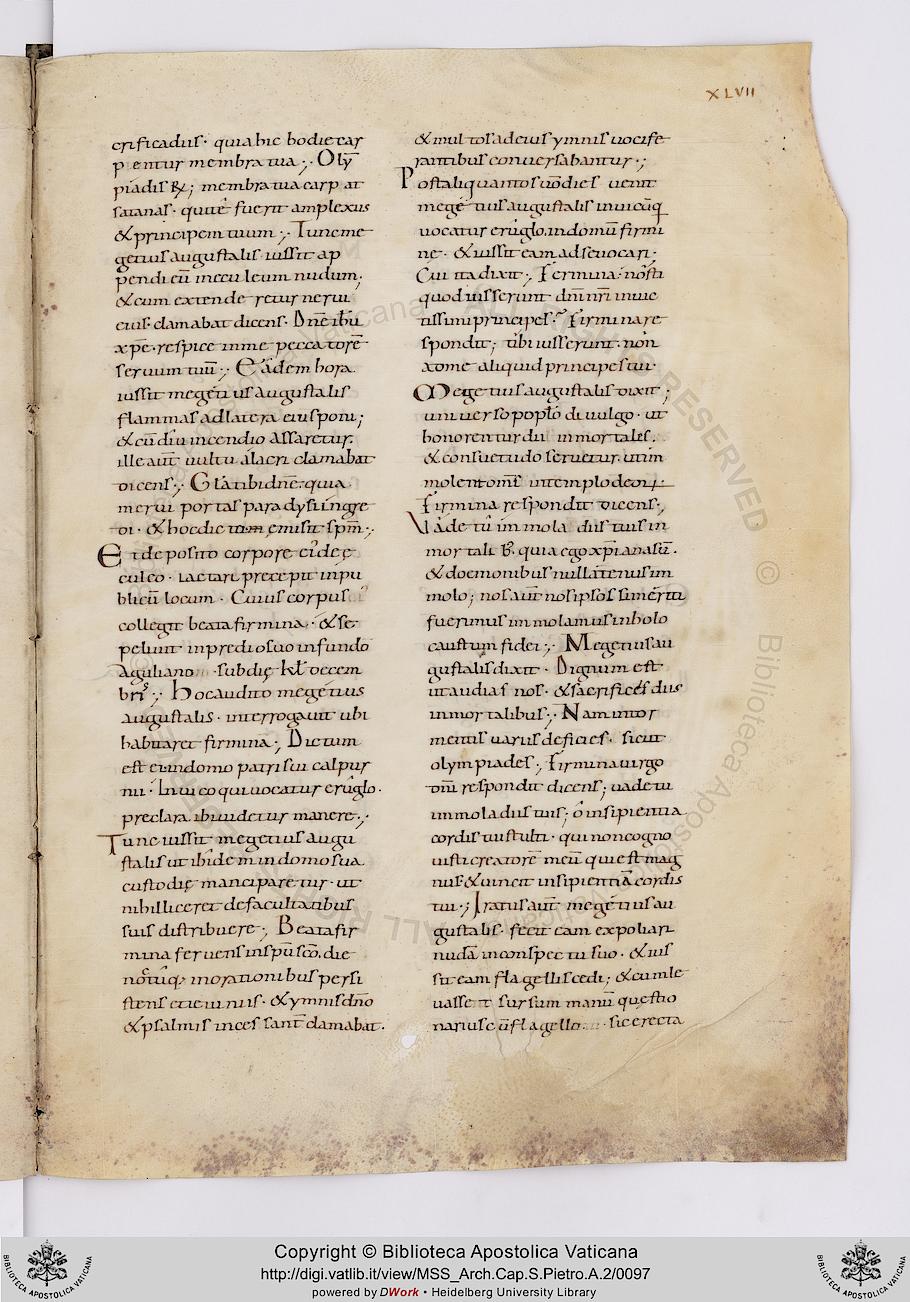 XLVII
crificadiis · quia hic hodie car
pentur membra tua ;· Olȳ
piadis R̸; membra tua carpat
satanas · qui tē fuerit amplexus
& principem tuum ;· Tunc me
getius augustalis iussit ap
pendi eū in eculeum nudum;
& cum extenderetur nerui
eius · clamabat dicens · Dn̄e ih̄u
xp̄e · respice in me peccatorē
seruum tuū ;· Eadem hora
iussit megetius augustalis
flammas ad latera eius poni;
& cū diu incendio assaretur.
ille aut̄ uultu alacri clamabat
dicens ;· Gl̄a tibi dn̄e · quia
merui portas paradysi ingre
di · & hoc dictum emisit sp̄m ;·
Et deposito corpore eide ę
culeo · iactari precepit in pu
blicū locum · Cuius corpus
collegit beata firmina · & se
peliuit in predio suo in fundo
aguliano · subdię kł decem
bri̅s ;· Hoc audito megetius
augustalis · interrogauit ubi
habitaret firmina ; Dictum
est ei in domo patris sui calpur
nii · In uico qui uocatur eruglo ·
preclara ibi uidetur manere ;·
Tunc iussit megetius augu
stalis ut ibidem in domo sua
custodię manciparetur · ut
nihil liceret de facultatibus
suis distribuere ; Beata fir
mina feruens in sp̄u sc̄o. die
noctuq; in orationibus persi
stens et ieiuniis · & ymnis dn̄o
& psalmis incessant̄ clamabat ·
& multos ad eius ymnis uocife
rantibus conuersabantur ·;
Post aliquantos u̅o dies uenit
megetius augustalis in uicū q
uocatur eruglo. in domū firmi
ne · & iussit eam ad se uocari;
Cui ita dixit ; Firmina · nosti
quod iusserunt dm̄ nr̄i inuic
tissimi principes? Firmina re
spondit; tibi iusserunt · non
a dome aliquid principes tui ·
Megetius augustalis dixit ;
uniuerso popl̄o diuulgo · ut
honorentur dii inmortales.
& consuetudo seruetur · ut im
molent om̄s in templo deorū
Firmina respondit dicens ;
Vade tū immola diis tuis in
mortalib; · quia ego xp̄iana sū ·
& doemonibus nullatenus im
molo; nos aut̄ nos ipsos si meriti
fuerimus immolamus in holo
caustum fidei ;· Megetius au
gustalis dixit · Dignum est
ut audias nos · & sacrifices diis
inmortalibus ;· Nam in tor
mentis uariis deficies · sicut
olympiades ; Firmina uirgo
dn̄i respondit dicens ; uade tu
immola diis tuis ; o insipientia
cordis tui stulti · qui non cogno
uisti creatorē meū qui est mag
nus & uincit insipientiā cordis
tui ·; Iratus aut̄ megetius au
gustalis · fecit eam expoliari
nudā in conspectu suo · & ius
sit eam flagellis cedi; & cum le
uasset sursum manū questio
narius cū flagello · sic erecta
Copyright © Biblioteca Apostolica Vaticana
http://digi.vatlib.it/view/MSS_Arch.Cap.S.Pietro.A.2/0097
powered by DWork • Heidelberg University Library